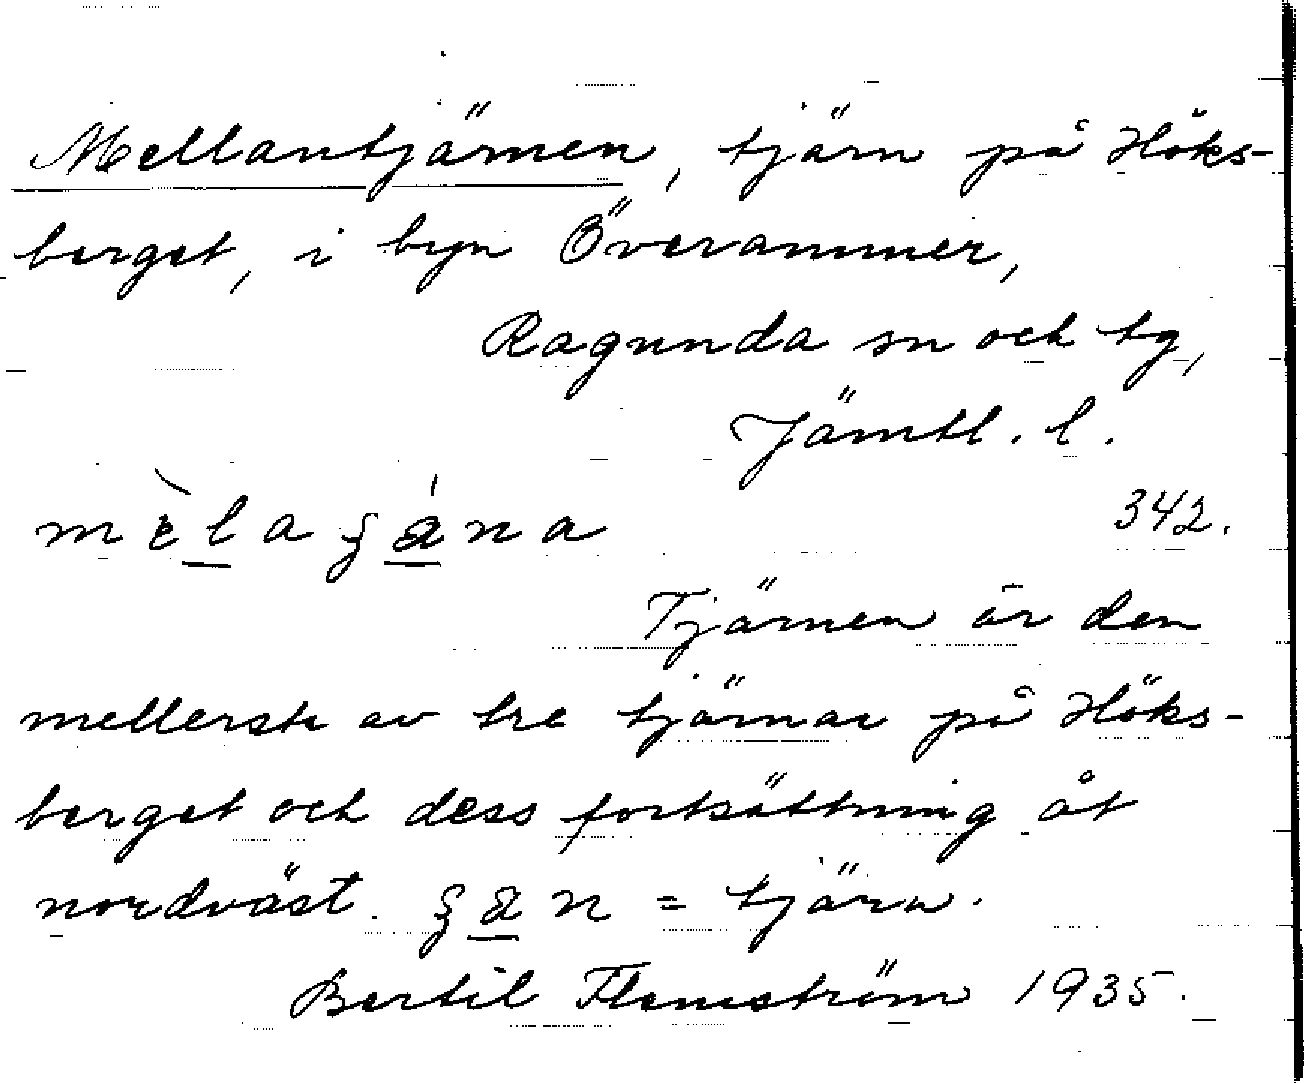 Mellantjärnen, tjärn på Höks-
berget, i byn Överammer,
Ragunda sn och tg,
Jämtl. l.
342.
Tjärnen är den
mellersta av tre tjärnar på Höks-
berget och dess fortsättning åt
nordväst. = tjärn.
Bertil Flemström 1935.